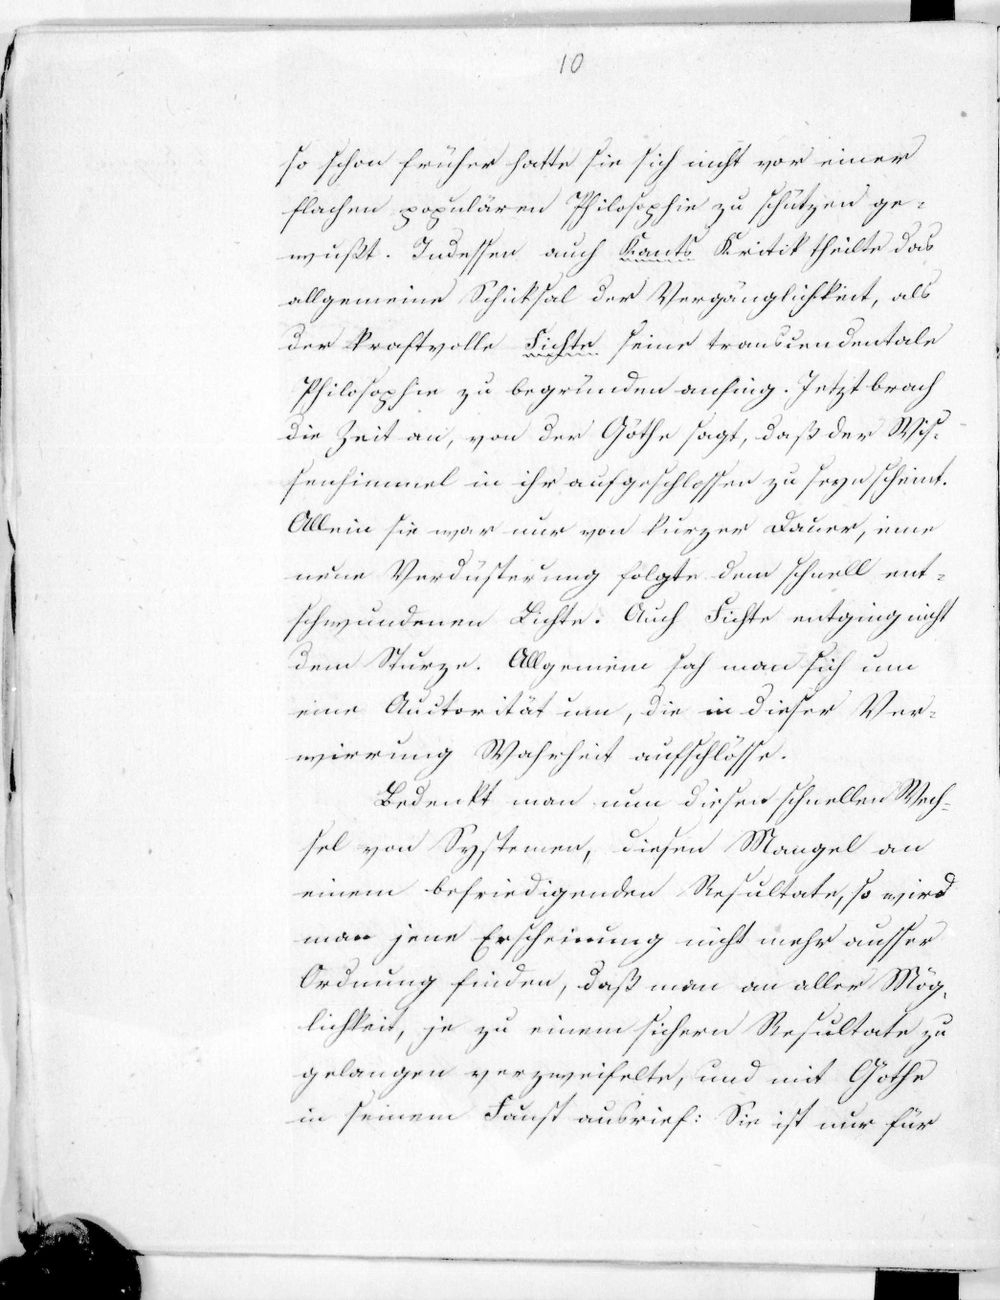 10
so schon früher hatte sie sich nicht vor einer
flachen populären Philosophie zu schützen ge-
wußt. Indessen auch Kants Kritik theilte das
allgemeine Schiksal der Vergänglichkeit, als
der kraftvolle Fichte seine transcendentale
Philosophie zu begründen anfing. Jetzt brach
die Zeit an, von der Göthe sagt, daß der Wis-
senhimmel in ihr aufgeschlossen zu seyn scheint.
Allein sie war nur von kurzer Dauer, eine
neue Verdüsterung folgte dem schnell ent-
schwundenen Lichte. Auch Fichte entging nicht
dem Sturze. Allgemein sah man sich um
eine Auctorität um, die in dieser Ver-
wirrung Wahrheit aufschlösse.
Bedenkt man nun diesen schnellen Wech-
sel von Systemen, diesen Mangel an
einem befriedigenden Resultate, so wird
man jene Erscheinung nicht mehr ausser
Ordnung finden, daß man an aller Mög-
lichkeit, je zu einem sichern Resultate zu
gelangen verzweifelte, und mit Göthe
in seinem Faust ausrief: Sie ist nur für